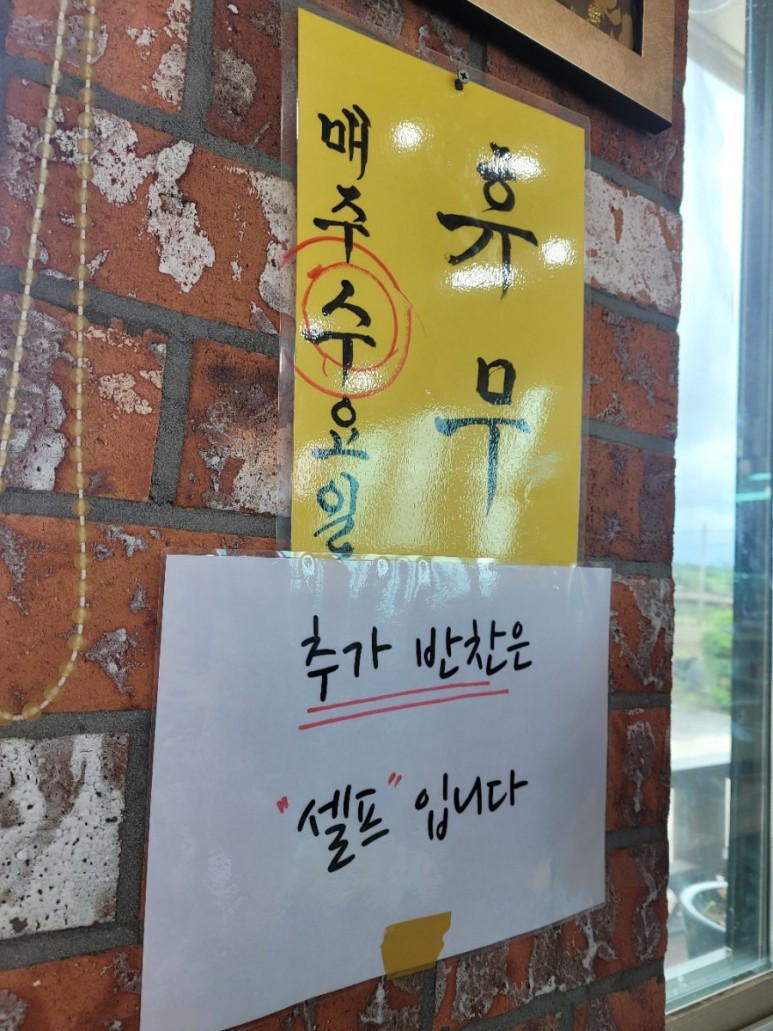 매주 수요일
휴무
추가 반찬은
"셀프" 입니다